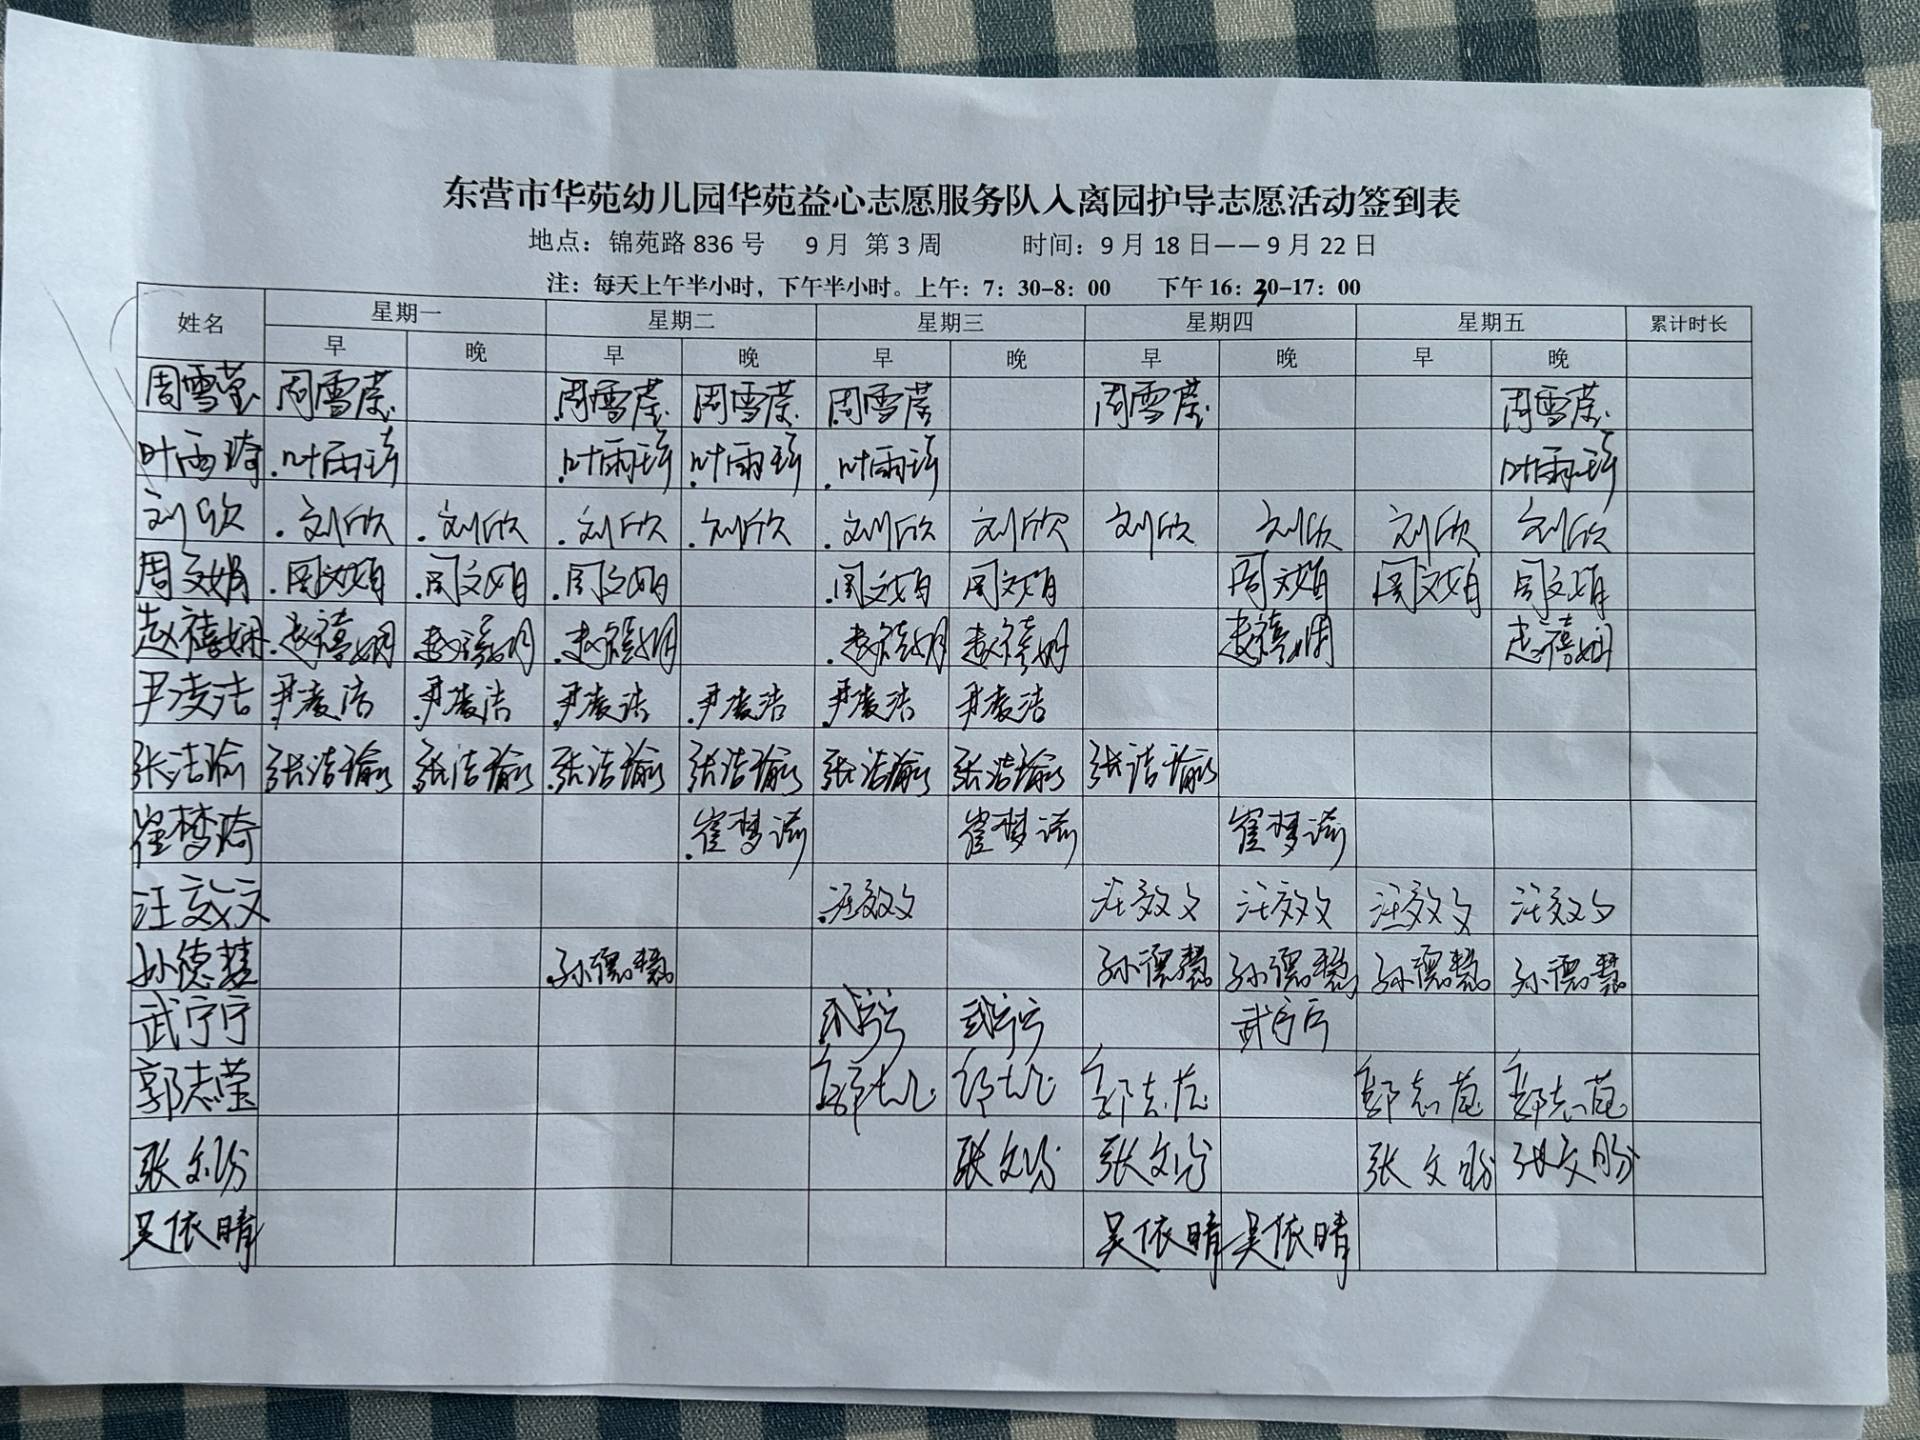 东营市华苑幼儿园华苑益心志愿服务队入离园护导志愿活动签到表
地点：锦苑路 836 号 9 月 第 3 周 时间：9 月 18 日——9 月 22 日
注：每天上午半小时，下午半小时。上午：7：30-8：00 下午 16：30-17：00
姓名 星期一 星期二 星期三 星期四 星期五 累计时长
早 晚 早 晚 早 晚 早 晚 早 晚
周雪莹 周雪莹 周雪莹 周雪莹 周雪莹 周雪莹 周雪莹
叶雨琦 叶雨琦 叶雨琦 叶雨琦 叶雨琦 叶雨琦
刘欣 刘欣 刘欣 刘欣 刘欣 刘欣 刘欣 刘欣 刘欣 刘欣 刘欣
周文娟 周文娟 周文娟 周文娟 周文娟 周文娟 周文娟 周文娟 周文娟
赵禧娴 赵禧娴 赵禧娴 赵禧娴 赵禧娴 赵禧娴 赵禧娴 赵禧娴
尹凌洁 尹凌洁 尹凌洁 尹凌洁 尹凌洁 尹凌洁 尹凌洁
张洁瑜 张洁瑜 张洁瑜 张洁瑜 张洁瑜 张洁瑜 张洁瑜 张洁瑜
崔梦琦 崔梦琦 崔梦琦 崔梦琦
汪效文 汪效文 汪效文 汪效文 汪效文 汪效文
孙德慧 孙德慧 孙德慧 孙德慧 孙德慧 孙德慧
武宁宁 武宁宁 武宁宁 武宁宁
郭志莹 郭志莹 郭志莹 郭志莹 郭志莹 郭志莹
张文盼 张文盼 张文盼 张文盼 张文盼
吴依晴 吴依晴 吴依晴